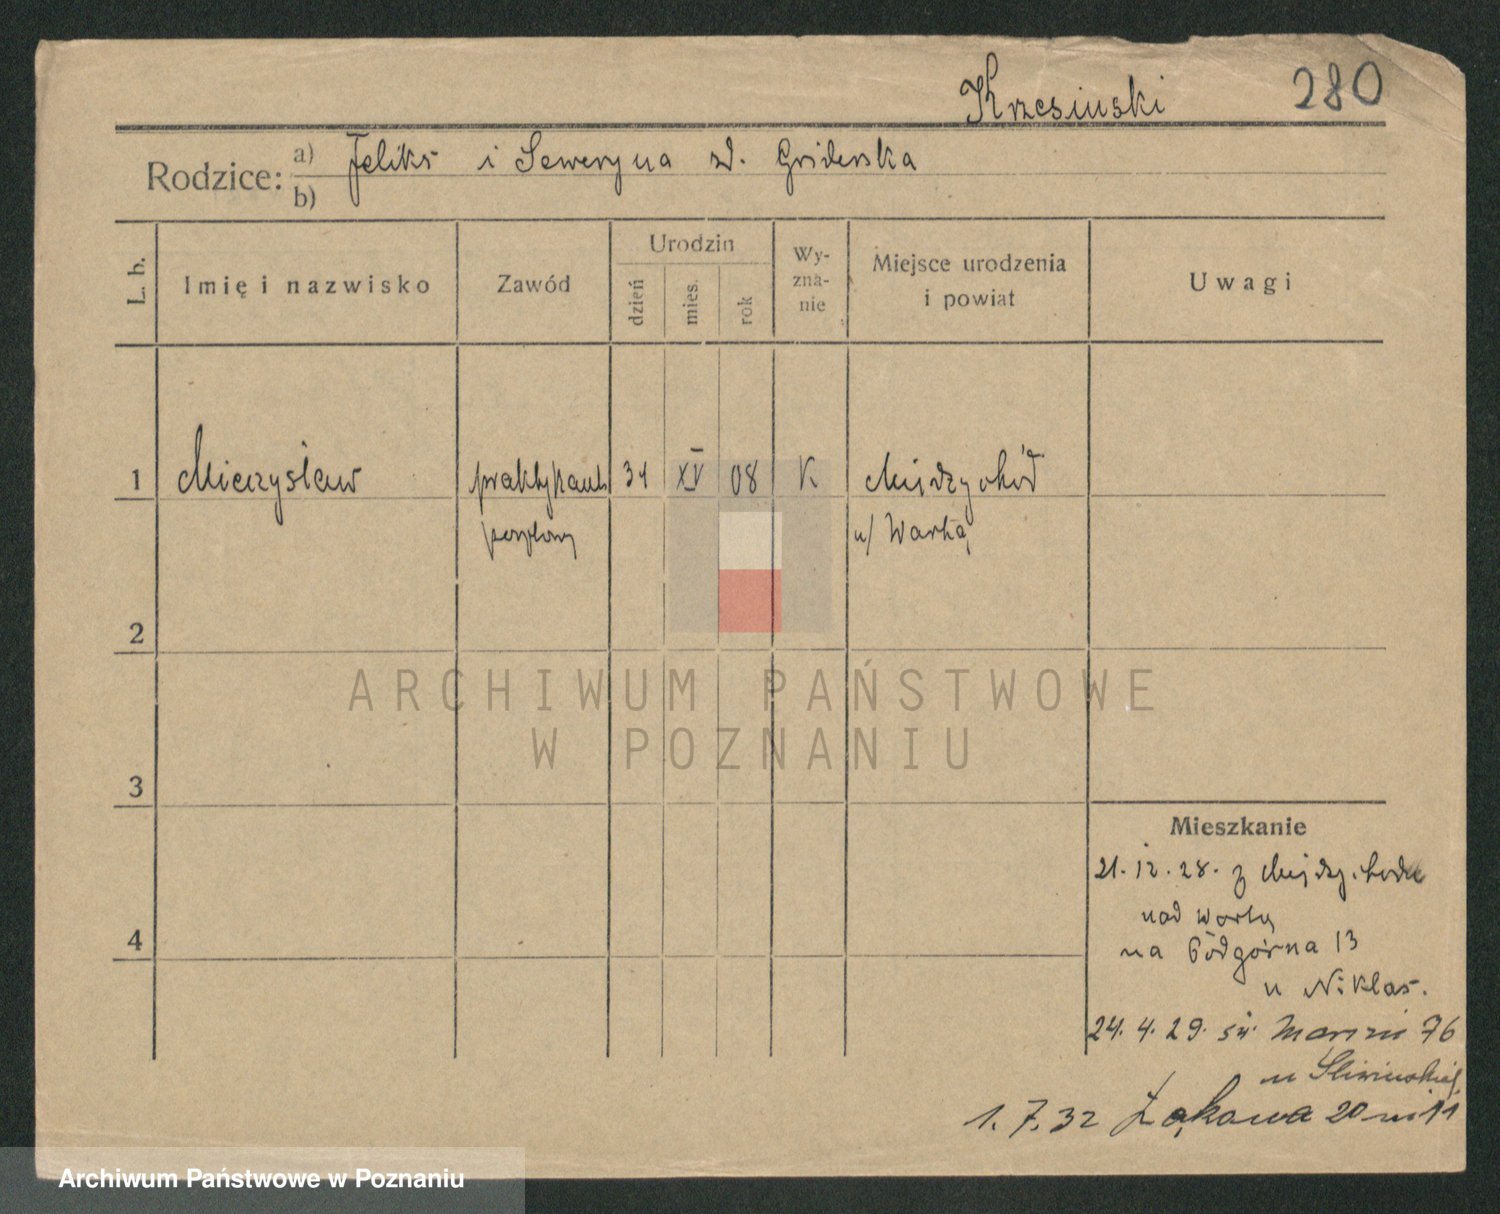 Krzesiński 280
Rodzice: a) Feliks i Seweryna zd.
b)
L. b. Imię i nazwisko Zawód Urodzin dzień mies. rok Wy-zna-nie Miejsce urodzenia i powiat Uwagi
1 Mieczysław praktykant 31 08 K Międzychód
n/ Wartą
2
ARCHIWUM PAŃSTWOWE
W POZNANIU
3
Mieszkanie
21. 12. 28. z Międzychodu
nad Wartą
4
na Podgórna 13
u Niklas.
24. 4. 29. św. Marcin 76
u Śliwińskiej
1. 7. 32 Łąkowa 20 m 11
Archiwum Państwowe w Poznaniu